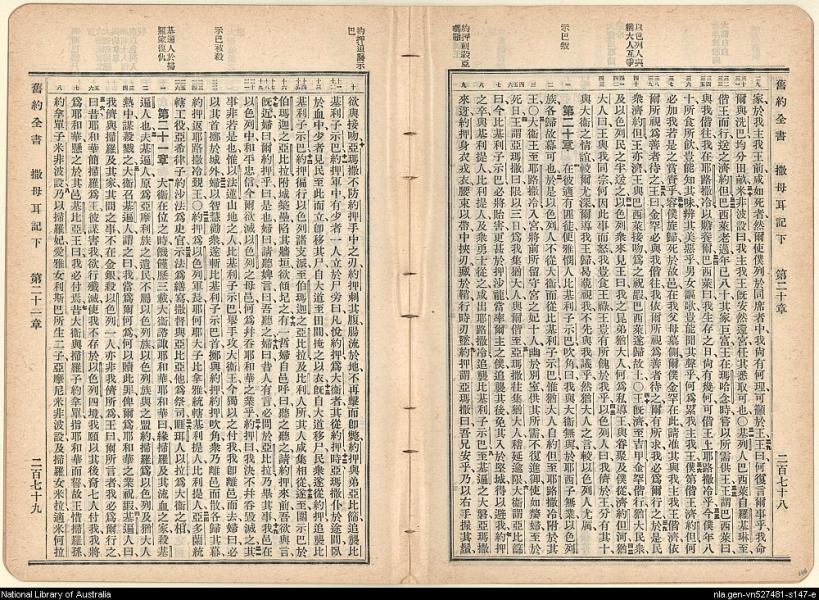 舊約全書 撒母耳記下 第二十章 二百七十八
以色列人與
猶大人互爭
示巴叛
約押刺殺亞
瑪撒
家於我主我王前咸如死者然而使僕列於同席者中我尚有何理可籲於王王曰何復言爾事乎我命
爾與洗巴均分田畝米非波設曰我主我王既安然還宮任其悉取可也○基列人巴西萊自羅基琳至
偕王而行送之濟約但巴西萊老邁年已八十其家巨富王在瑪哈念時嘗以所需供王王謂巴西萊曰
與我偕往我在耶路撒冷以贍養爾巴西萊曰我生存之日尚有幾何可偕王上耶路撒冷乎今僕年八
十所食所飲豈能知其味辨其美惡乎男女謳歌豈能聞其聲乎何為累我主我王僕第偕王濟約但何
必加我若是之賞賚乎容僕旋歸死於故邑在我父母墓側爾僕金罕在此請准其與我主我王偕濟依
爾所視為善者待之王曰金罕必與我偕往我依爾所視為善者待之爾有所求我必為爾行之於是民
眾濟約但王亦濟王與巴西萊接吻為之祝嘏巴西萊遂歸故土○王既濟至吉甲金罕偕行猶大民
及以色列民之半送之以色列眾來見王曰我之昆弟猶大人何為私導王與眷聚及僕從濟約但河猶
大人曰王與我同宗何因此事而怒我豈食王祿王豈有所餽於我乎以色列人曰我儕於王分有其十
與大衛之情誼較爾尤深爾導我王歸曷藐視我不先與我議乎然猶大人之言較以色列人尤厲
第二十章 在彼適有匪徒便雅憫人比基利子示巴吹角曰我與大衛無與於耶西子無業以色列
族各歸故幕可也於是以色列人不從大衛而從比基利子示巴惟猶大人自約但至耶路撒冷附於其
王○大衛王至耶路撒冷入宮將前所留守宮之妃十人幽於別室供其所需不復進御使如嫠婦至於
死日王謂亞瑪撒曰限以三日為我集猶大人爾偕至亞瑪撒往集猶大人稽延逾限大衛謂亞比篩
曰今比基利子示巴必將貽害更甚於押沙龍當率爾主之僕追襲其後免其入於堅城得以避我約押
之卒與基利提人比利提人及眾勇士從之咸出耶路撒冷追襲比基利子示巴至基遍之大磐亞瑪撒
來迓約押身衣戎衣腰束以帶中挾刃藏於鞘行時刃墜約押謂亞瑪撒曰吾兄安乎乃以右手撮其鬚
約押追襲示
巴
示巴被殺
基遍人於掃
羅家復仇
欲與接吻亞瑪撒不防約押手中之刃約押刺其腹腸流於地不再擊而即斃約押與弟亞比篩追襲比
基利子示巴約押軍中有少者一人立於尸旁曰凡悅約押為大衛者其從約押時亞瑪撒仆於途間臥
於血中少者見民至此而立即移其尸自大道至田間掩之以衣既自大道移尸民眾遂從約押追襲比
基利子示巴約押徧行以色列諸支派至伯瑪迦之亞比拉及比利人所其人咸集相從遂至圍示巴於
伯瑪迦之亞比拉附城築壘陷其牆垣欲傾圮之有一哲婦自邑呼曰聽之聽之請約押來前吾欲與言
既近婦曰爾約押乎曰是也婦曰請聽婢言曰吾聽之婦曰昔人有言必問於亞比拉乃畢其事我邑在
以色列中和平忠信今爾欲滅以色列之母邑何為吞耶和華之業乎約押曰我決不并吞毀滅之其
事非若是也惟以法蓮山地之人比基利子示巴舉手攻大衛王今獨以之付我我即離邑而去婦曰必
以其首擲於城外婦以智慧勸眾遂斬比基利子示巴首擲與約押約押吹角眾乃離邑而散各歸其幕
約押返耶路撒冷覲王○約押為以色列軍長耶何耶大子比拿雅統轄基利提人比利提人亞多蘭統
轄工役亞希律子約沙法為史官示法為繕寫撒督與亞比亞他為祭司睚珥人以拉為大衛之相
第二十一章 大衛在位之時饑饉歷三載大衛諮諏耶和華耶和華曰緣掃羅及其流血之家殺基
遍人也夫基遍人原為亞摩利族之遺民不屬以色列族以色列族與之盟約掃羅為以色列及猶大人
熱中謀殺戮之大衛召基遍人謂之曰我當為爾何為何以贖此罪俾爾為耶和華之業祝嘏基遍人曰
我儕與掃羅及其家其間之事不在金銀殺以色列一人亦非我儕所為王曰爾所言者我必為爾行之
曰昔耶和華簡掃羅為王彼謀害我欲行殲滅使我不存於以色列四境我願以其後裔七人付我我將
為耶和華懸之於其邑基比亞王曰我必付焉昔大衛與掃羅子約拿單指耶和華而誓故王惜掃羅孫
約拿單子米非波設乃以掃羅妃愛雅女利斯巴所生二子亞摩尼米非波設及掃羅女米拉適米何拉
舊約全書 撒母耳記下 第二十一章 二百七十九
National Library of Australia
nla.gen-vn527481-s147-e